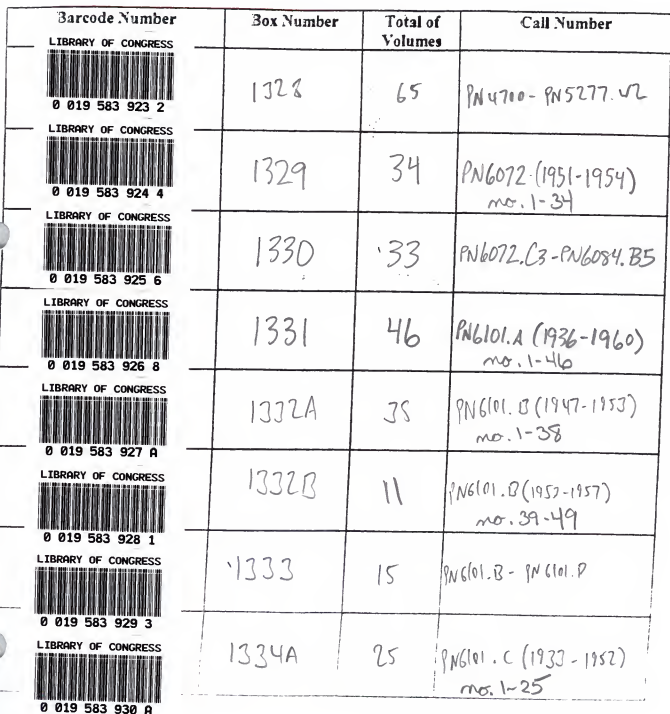 Barcode Number Box Number Total of Volumes Call Number
LIBRARY OF CONGRESS
0 019 583 923 2
1328 65 PN4700 - PN5277.W2
LIBRARY OF CONGRESS
0 019 583 924 4
1329 34 PN6072 (1951-1954)
no. 1-34
LIBRARY OF CONGRESS
0 019 583 925 6
1330 33 PN6072.C3-PN6084.B5
LIBRARY OF CONGRESS
0 019 583 926 8
1331 46 PN6101.A (1936-1960)
no. 1-46
LIBRARY OF CONGRESS
0 019 583 927 A
1332A 38 PN6101.B (1947-1953)
no. 1-38
LIBRARY OF CONGRESS
0 019 583 928 1
1332B 11 PN6101.B (1957-1957)
no. 39-49
LIBRARY OF CONGRESS
0 019 583 929 3
1333 15 PN6101.B - PN6101.P
LIBRARY OF CONGRESS
0 019 583 930 A
1334A 25 PN6101.C (1933-1952)
no. 1-25